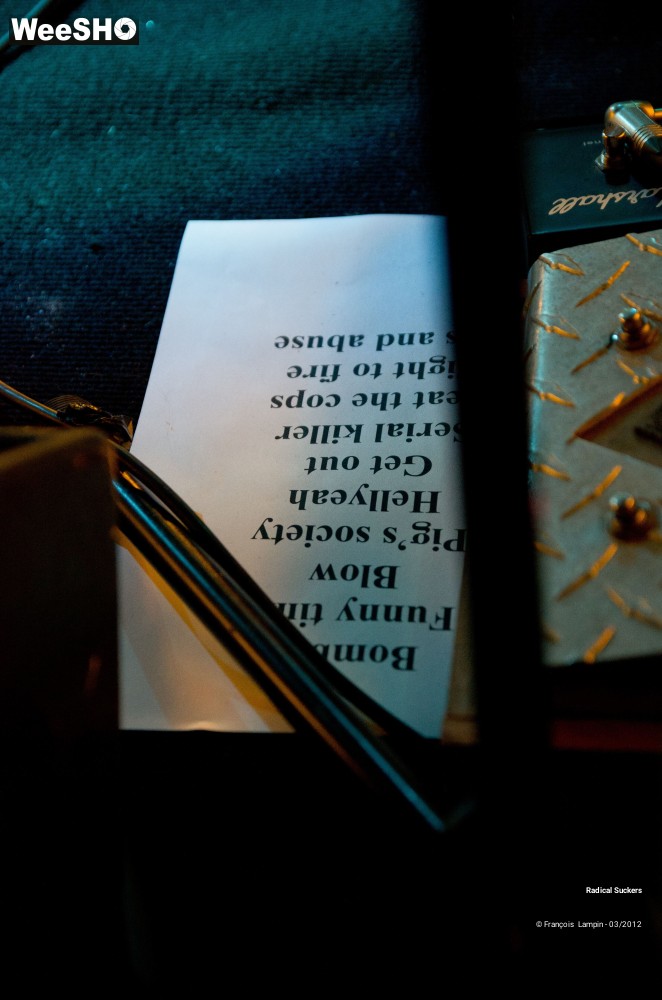 WeeSHO
Marshall
Bomb
Funny tim
Blow
Pig's society
Hellyeah
Get out
Serial killer
eat the cops
ight to fire
s and abuse
Radical Suckers
© François Lampin - 03/2012